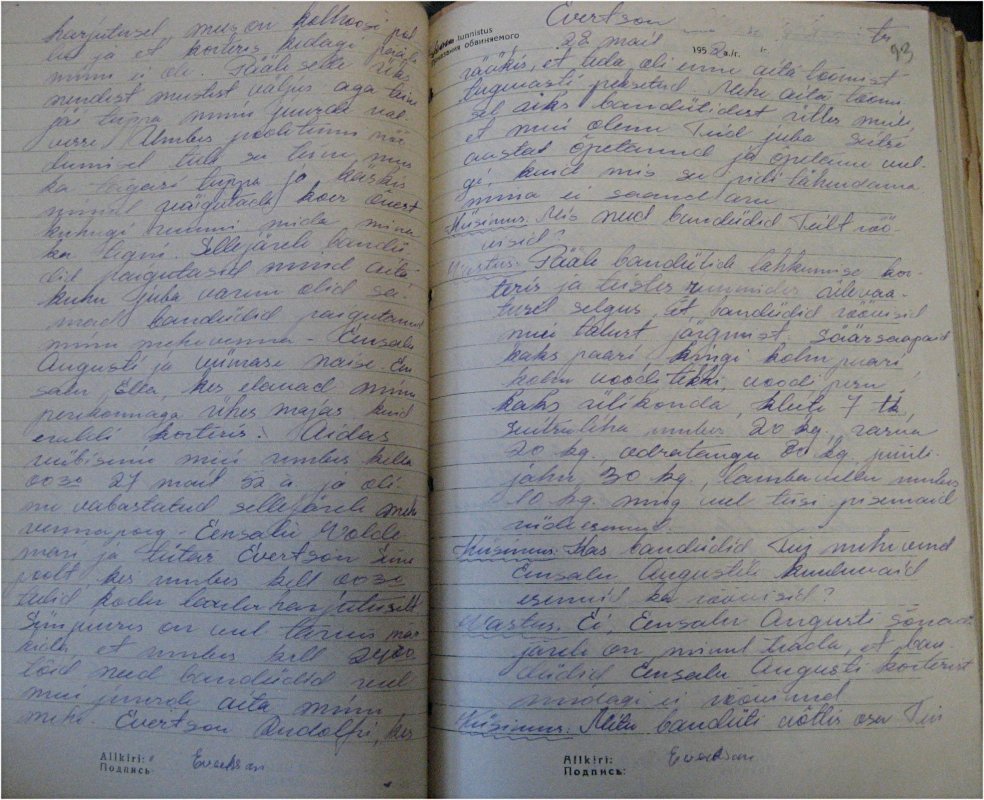 harjutusel, mees on kolhoosi põl
lul ja et korteris kedagi pääle
minu ei ole. Pääle selle üks
nendest meestest väljus aga teine
jäi tuppa minu juurde val-
vesse. Umbes pooletunni möö-
dumisel tuli see teine mees
ka tagasi tuppa ja käskis
minul paigutada koer kuhugi
ruumi mida mina
ka tegin. Sellejärele bandii-
did paigutasid mind aita
kuhu juba varem olid sa-
mad bandiidid paigutanud
minu mehevenna - Eensalu
Augusti ja viimase naise Een
salu Ella, kes elavad minu
perekonnaga ühes majas kuid
eraldi korteris. Aidas
viibisime meie umbes kella
00 30 27 mail 52 a ja oli
me vabastatud sellejärele mehe
vennapoeg - Eensalu Volde
mari ja tütar Evertson Eimi
poolt, kes umbes kell 00 30
tulid kodu lauluharjutuselt
Siinjuures on veel tarvis mär
kida, et umbes kell 24 00
tõid need bandiidid veel
meie juurde aita minu
mehe - Evertson Rudolfi, kes
Allkiri:
Подпись:
Evertson
Evertson
tunnistus
Показания обвиняемого
28 mail
195 2 a./г.
93
rääkis, et teda oli enne aita toomist
tugevasti pekstud. Mehe aita toomi
sel üks bandiitidest ütles meile
et meie oleme Teid juba sütri
austat õpetanud ja õpetame veel-
gi, kuid mis see pidi tähendama
mina ei saanud aru.
Küsimus: Mis need bandiidid Teilt röö-
visid?
Vastus: Pääle bandiitide lahkumise kor-
teris ja teistes ruumides ülevaa-
tusel selgus, et bandiidid röövisid
meie talust järgmist: Säärsaapaid
kaks paari, kingi kolm paari,
kolm vooditekki, voodi pesu,
kaks ülikonda, kleite 7 tk,
suitsuliha umbes 20 kg. rasva
20 kg, odratangu 80 kg, püüli-
jahu 30 kg, lambavilla umbes
10 kg. ning veel teisi pisemaid
riideesemeid.
Küsimus: Kas bandiidid Teie mehe venna
Eensalu Augustile kuuluvaid
esemeid ka röövisid?
Vastus: Ei, Eensalu Augusti sõnade
järele on minul teada, et ban-
diidid Eensalu Augusti korterist
midagi ei röövinud
Küsimus: Mitu bandiiti võttis osa Teie
Allkiri:
Подпись:
Evertson